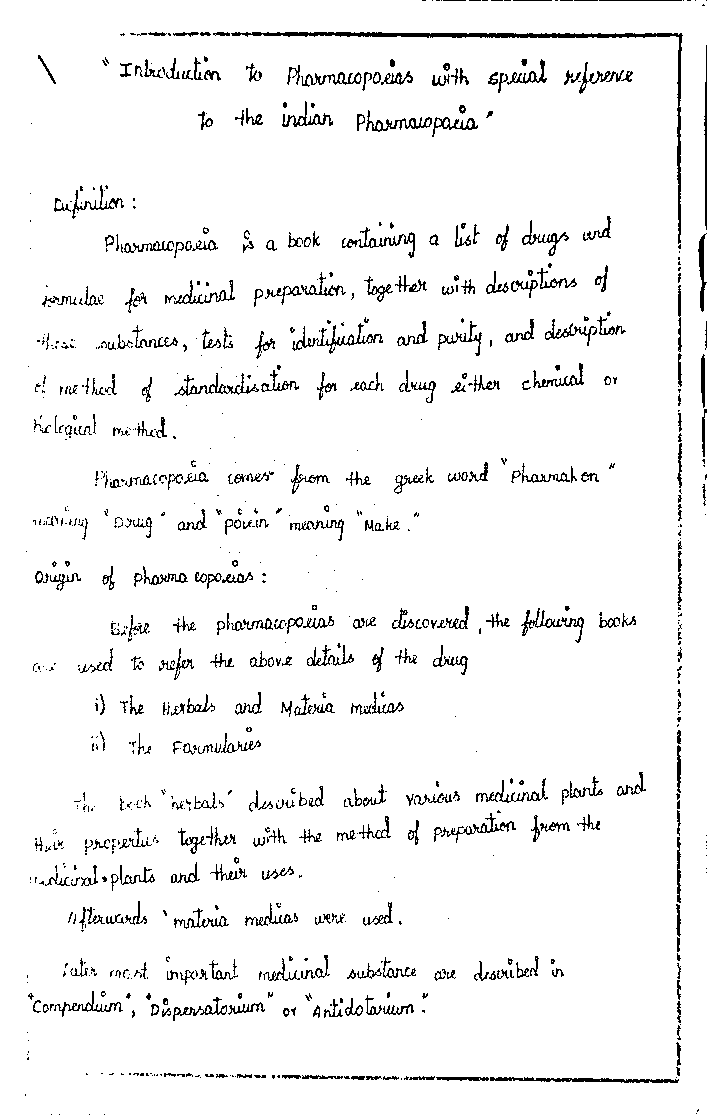 "Introduction to Pharmacopoeias with special reference
to the indian Pharmacopoeia"
Definition :
Pharmacopoeia is a book containing a list of drugs and
formulae for medicinal preparation, together with descriptions of
these substances, tests for identification and purity, and description
of method of standardisation for each drug either chemical or
biological method.
Pharmacopoeia comes from the greek word "Pharmakon"
meaning "Drug" and "poiein" meaning "Make."
Origin of pharmacopoeias :
Before the pharmacopoeias are discovered, the following books
are used to refer the above details of the drug
i) The Herbals and Materia medicas
ii) The Formularies
The book "herbals" described about various medicinal plants and
their properties together with the method of preparation from the
medicinal plants and their uses.
Afterwards 'materia medicas were used.
Later most important medicinal substance are described in
"Compendium", "Dispensatorium" or "Antidotarium".